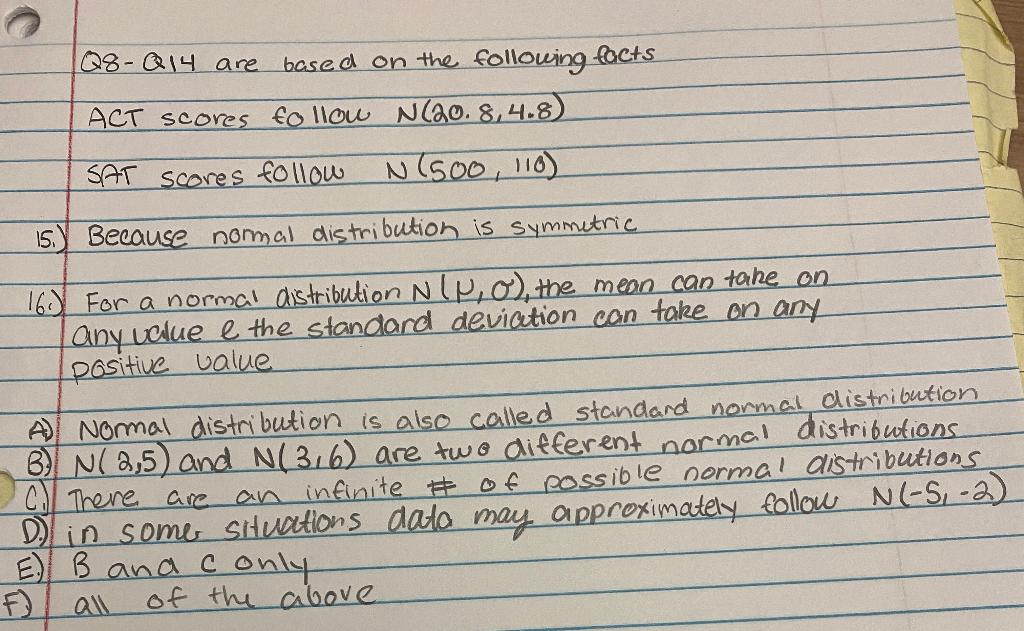 Q8-Q14 are based on the following facts
ACT scores follow N(20.8,4.8)
SAT scores follow N(500, 110)
15.) Because normal distribution is symmetric
16.) For a normal distribution N(μ,σ), the mean can take on
any value & the standard deviation can take on any
positive value
A) Normal distribution is also called standard normal distribution
B) N(2,5) and N(3,6) are two different normal distributions
C) There are an infinite # of possible normal distributions
D) in some situations data may approximately follow N(-5,-2)
E) B and C only
F) all of the above